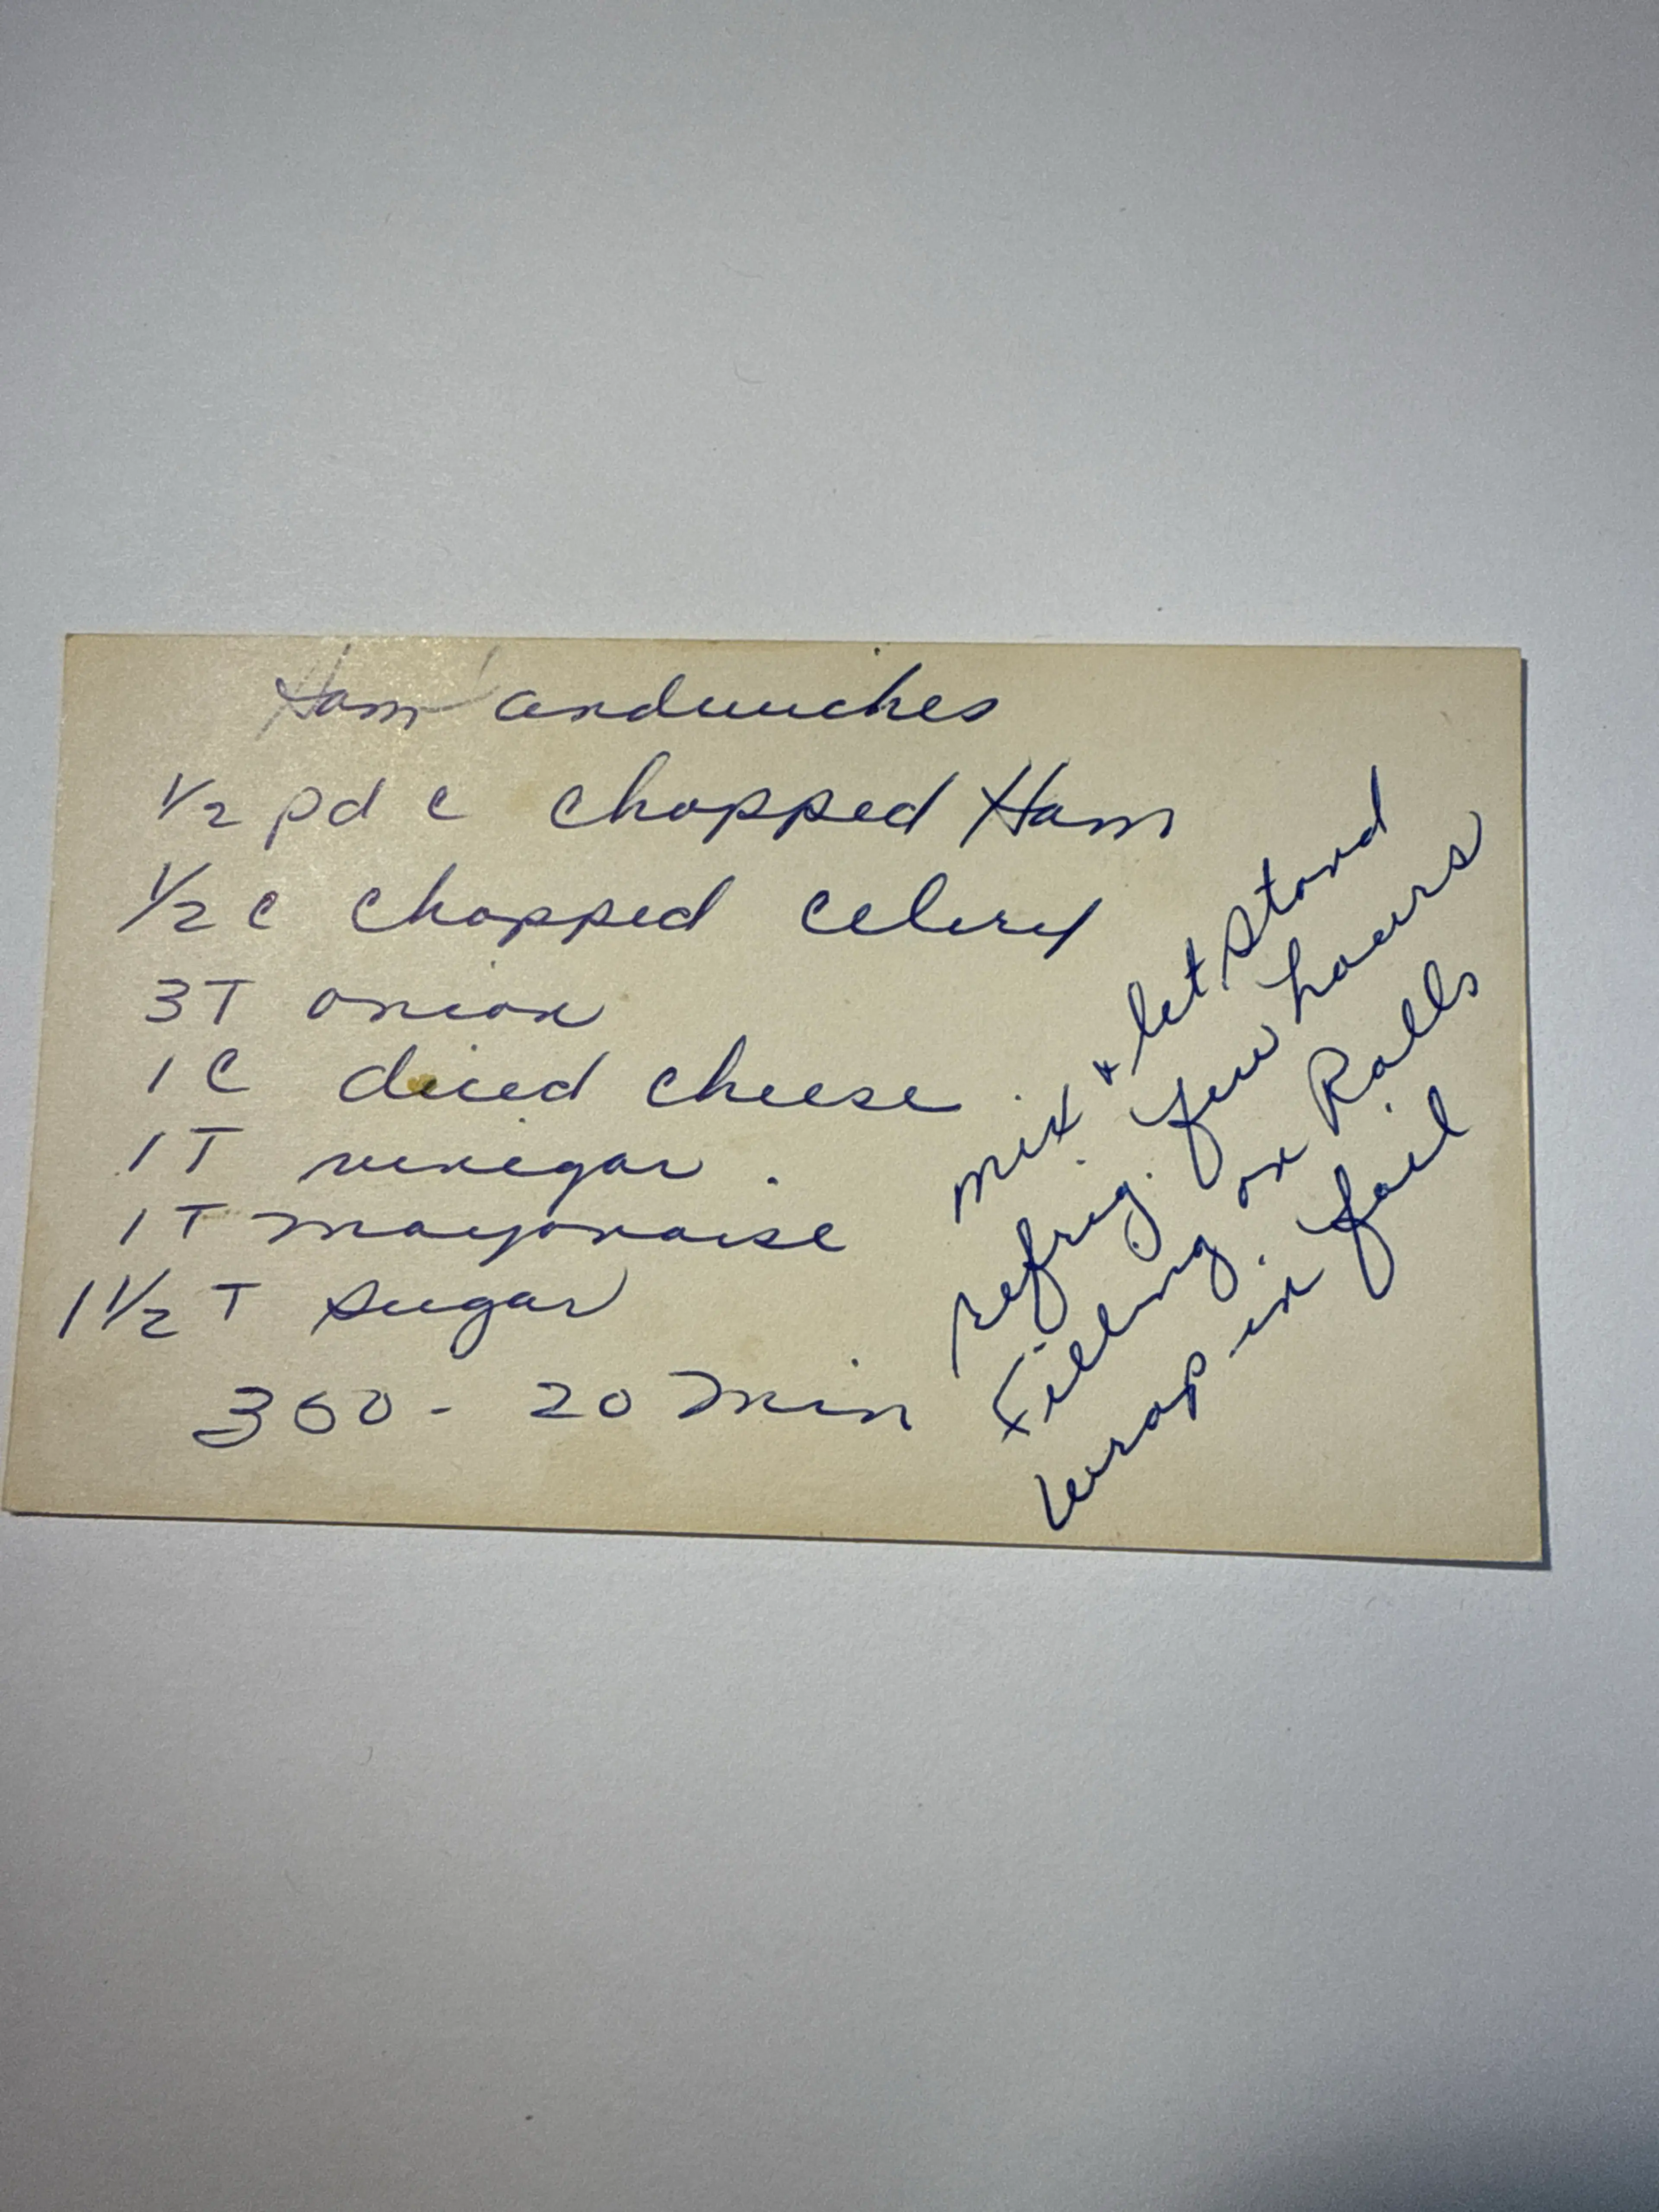 Ham Sandwiches
1/2 pd c chopped Ham
1/2 c chopped celery
3T onion
1 C diced cheese
1 T vinegar.
1 T mayonaise
1 1/2 T sugar
360 - 20 min
mix & let stand
refrig. few hours
Filling on Rolls
wrap in foil